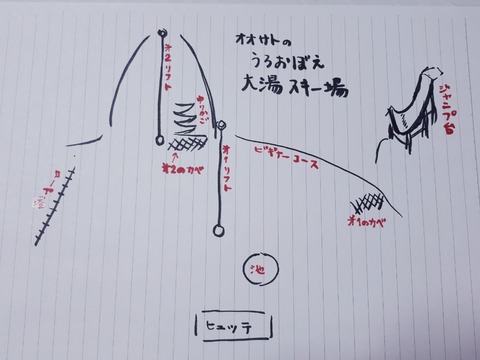 オオサトの
うろおぼえ
大湯スキー場
オ2リフト
ゆりかご
オ2のカベ
オ1リフト
ビギナーコース
ジャンプ台
オ1のカベ
池
ヒュッテ